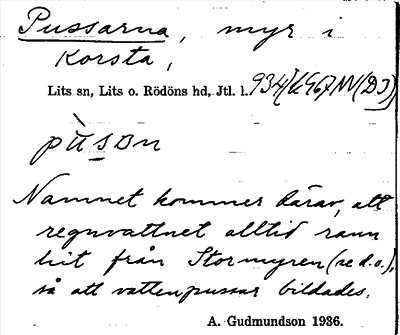 Pussarna, myr i
Korsta,
Lits sn, Lits o. Rödöns hd, Jtl. l.
pùsɒn
Namnet kommer därav, att
regnvattnet alltid rann
hit från Stormyren (se d.o.),
så att vattenpussar bildades.
A. Gudmundson 1936.